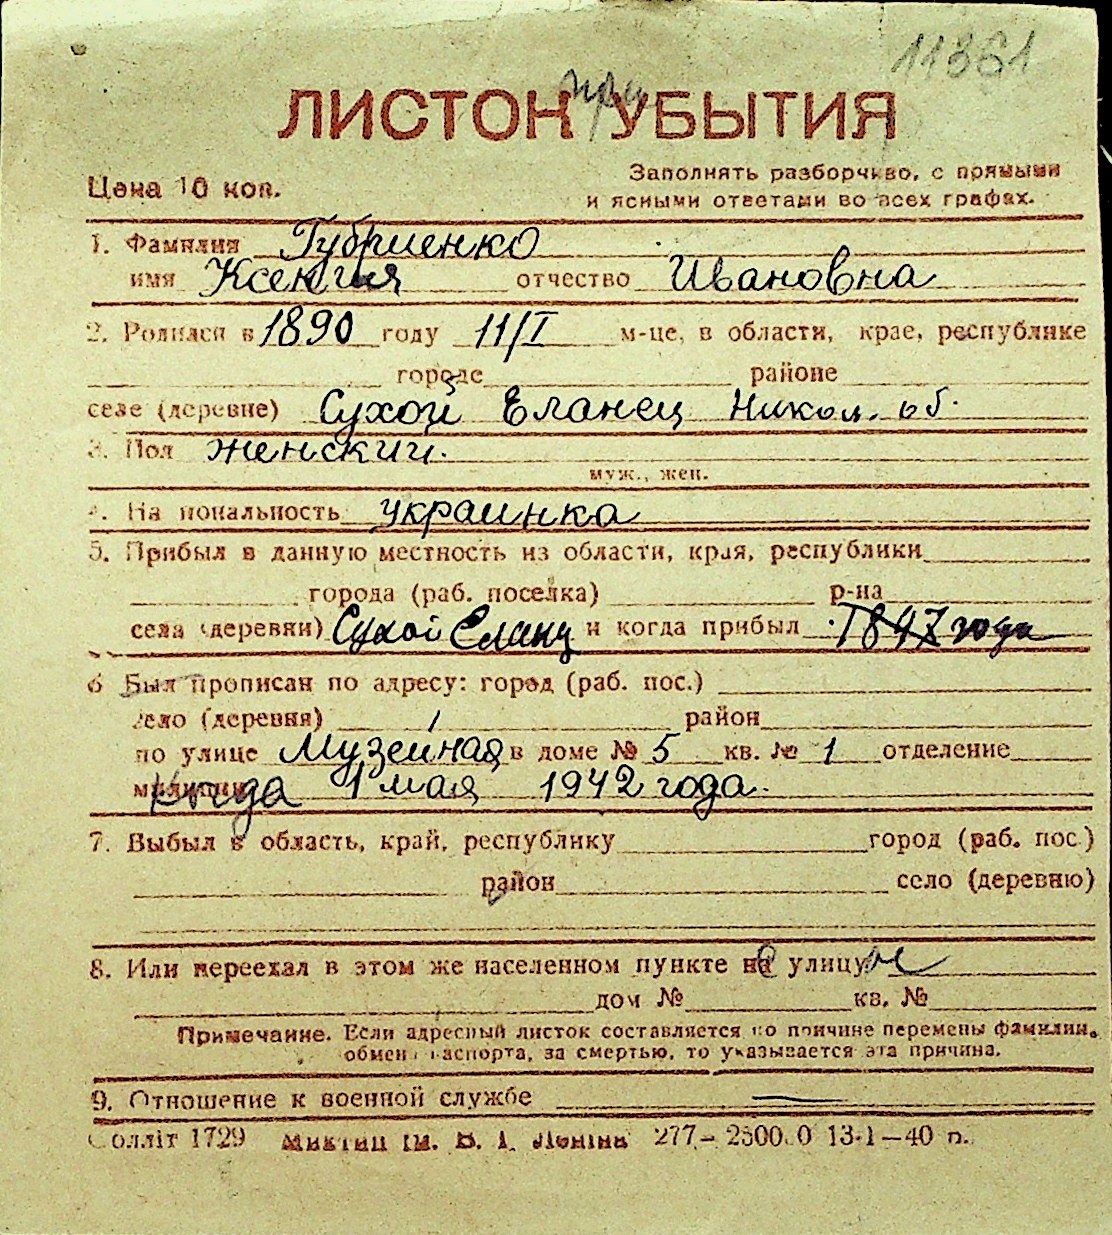 11361
при
ЛИСТОК УБЫТИЯ
Цена 10 коп.
Заполнять разборчиво, с прямыми
и ясными ответами во всех графах.
1. Фамилия Губриенко
имя Ксения отчество Ивановна
2. Родился в 1890 году 11/I м-це, в области, крае, республике
городе районе
селе (деревне) Сухой Еланец Никол. об.
3. Пол женский.
муж., жен.
4. На иональность украинка
5. Прибыл в данную местность из области, края, республики
города (раб. поселка) р-на
села (деревни) Сухой Еланц и когда прибыл 1897 года
6 Был прописан по адресу: город (раб. пос.)
село (деревня) район
по улице Музейная в доме № 5 кв. № 1 отделение
милиции Когда 1 мая 1942 года.
7. Выбыл в область, край, республику город (раб. пос.)
район село (деревню)
8. Или переехал в этом же населенном пункте на улицу
дом № кв. №
Примечание. Если адресный листок составляется по причине перемены фамилии,
обмена паспорта, за смертью, то указывается эта причина.
9. Отношение к военной службе
Солліт 1729 ім. В. І. Леніна 277—2500.0 13-1—40 п.